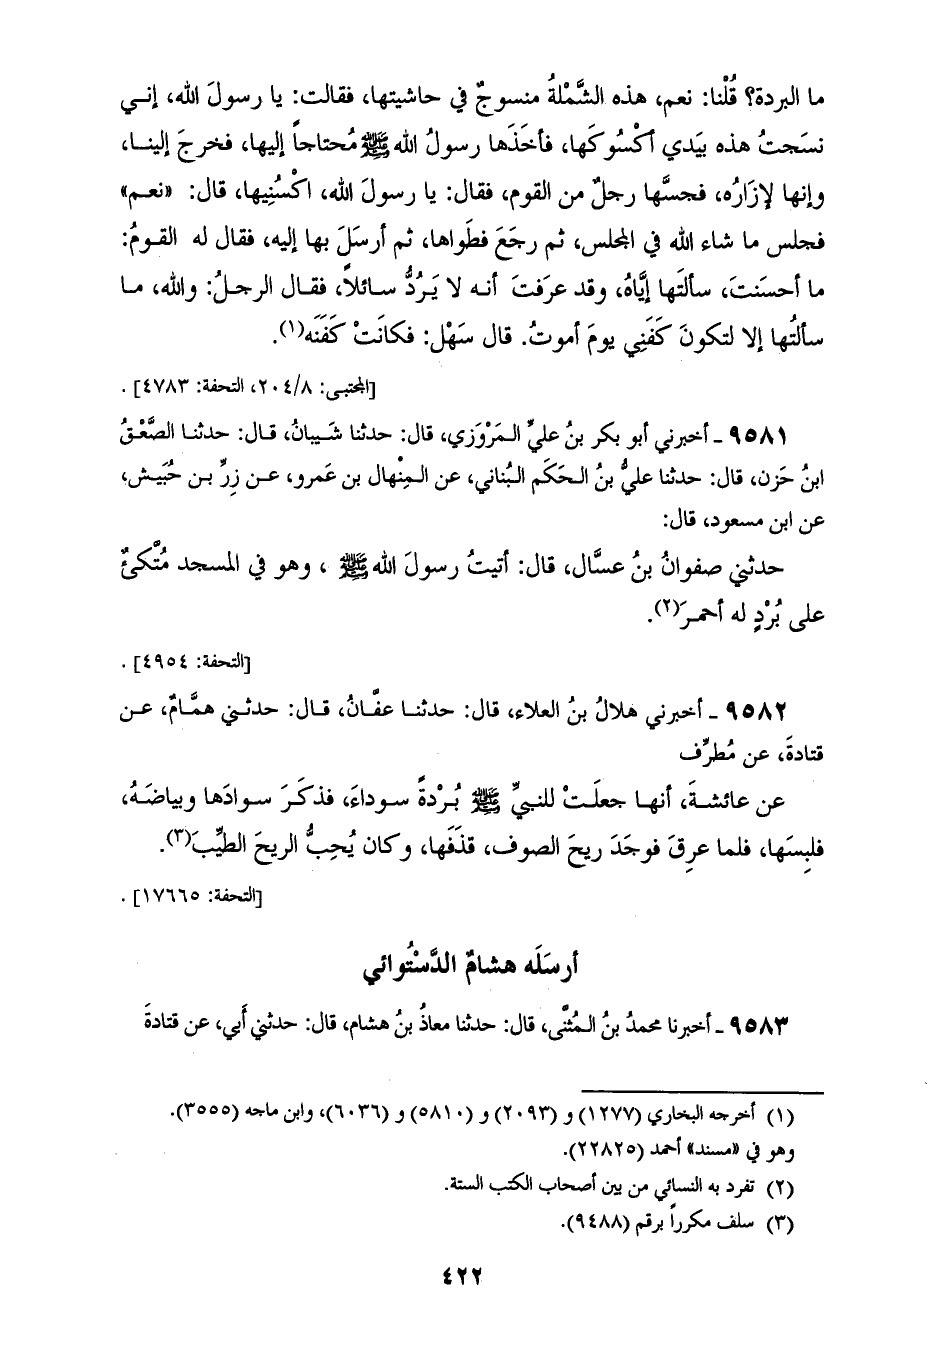 ما البردة؟ قُلْنا: نعم، هذه الشَّمْلةُ منسوجٌ في حاشيتها، فقالت: يا رسولَ الله، إنـي
نسَجتُ هذه بيَدي أكْسُوكَها، فأخَذَها رسولُ الله ﷺ مُحتاجاً إليها، فخرجَ إلينـا،
وإنها لإزَارُه، فجسَّها رجلٌ من القوم، فقال: يا رسولَ الله، اكْسُنِيها، قال: «نعـم»
فجلس ما شاء الله في المجلس، ثم رجَعَ فطَواها، ثم أرسَلَ بها إليه، فقال له القـومُ:
ما أحسَنتَ، سألتَها إيَّاهُ، وقد عرَفتَ أنـه لا يَـرُدُّ سـائلاً، فقـال الرجـلُ: والله، مـا
سألتُها إلا لتكونَ كَفَنِي يومَ أموتُ. قال سَهْل: فكانَتْ كَفَنَه(١).
[المجتبى: ٢٠٤/٨، التحفة: ٤٧٨٣] .
٩٥٨١ ـ أخبرني أبو بكر بنُ عليٍّ الـمَرْوَزي، قال: حدثنا شَـيبانُ، قـال: حدثنـا الصَّعْقُ
ابنُ حَزن، قال: حدثنا عليُّ بنُ الـحَكَم البُناني، عن الـمِنْهال بن عَمرو، عـن زِرِّ بـن حُبَيش،
عن ابن مسعود، قال:
حدثني صفوانُ بنُ عسَّال، قال: أتيتُ رسولَ الله ﷺ ، وهو في المسجد مُتَّكئٌ
على بُرْدٍ له أحمـرَ(٢).
[التحفة: ٤٩٥٤] .
٩٥٨٢ ـ أخبرني هلالُ بنُ العلاء، قال: حدثنـا عفَّانُ، قـال: حدثـني همَّامٌ، عـن
قتادةَ، عن مُطرِّف
عن عائشـةَ، أنهـا جعلَـتْ للنبيِّ ﷺ بُـرْدةً سـوداءَ، فذكـرَ سـوادَها وبياضَـهُ،
فلبِسَها، فلما عرِقَ فوجَدَ ريحَ الصوف، قذَفَها، وكان يُحِبُّ الريحَ الطيِّبَ(٣).
[التحفة: ١٧٦٦٥] .
أرسَلَه هشامٌ الدَّسْتُوائي
٩٥٨٣ ـ أخبرنا محمدُ بنُ الـمُثنَّى، قال: حدثنا معاذُ بنُ هشام، قال: حدثني أَبي، عن قتادةَ
(١) أخرجه البخاري (١٢٧٧) و (٢٠٩٣) و (٥٨١٠) و (٦٠٣٦)، وابن ماجه (٣٥٥٥).
وهو في «مسند» أحمد (٢٢٨٢٥).
(٢) تفرد به النسائي من بين أصحاب الكتب الستة.
(٣) سلف مكرراً برقم (٩٤٨٨).
٤٢٢